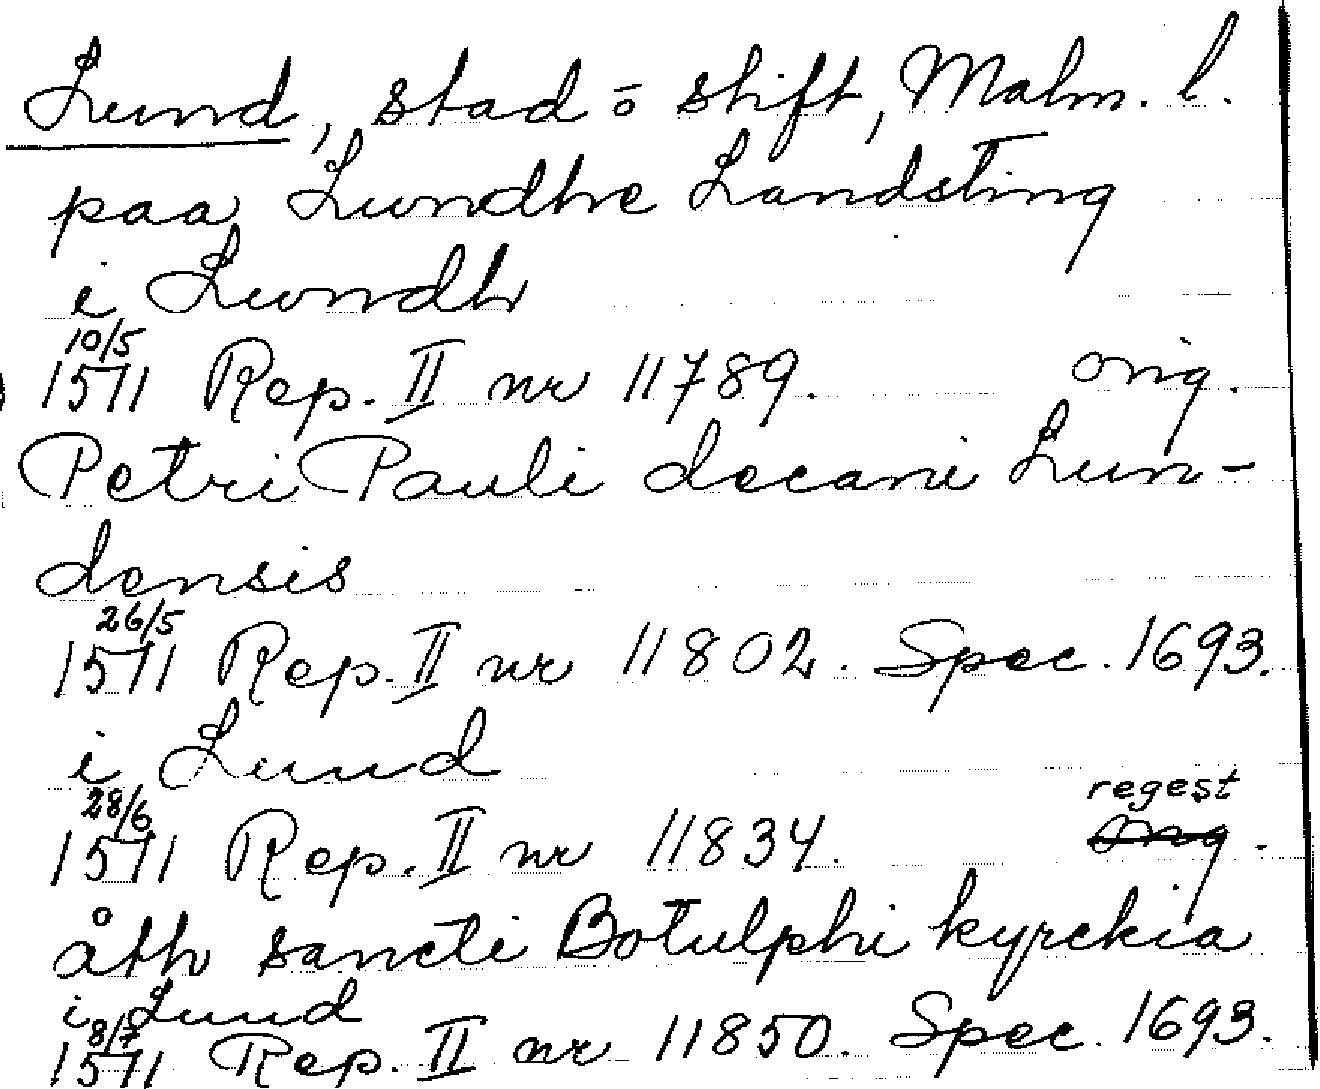 Lund, stad o skift, Malm. l.
paa Lundhe Landsting
i Lundh
10/5
1571 Rep. II nr 11789. orig.
Petri Pauli decani Lun-
densis
26/5
1571 Rep. II nr 11802. Spec. 1693.
i Lund
28/6 regest
1571 Rep. II nr 11834. orig.
åth sancti Botulphi kyrckia
i Lund
8/7
1571 Rep. II nr 11850. Spec. 1693.